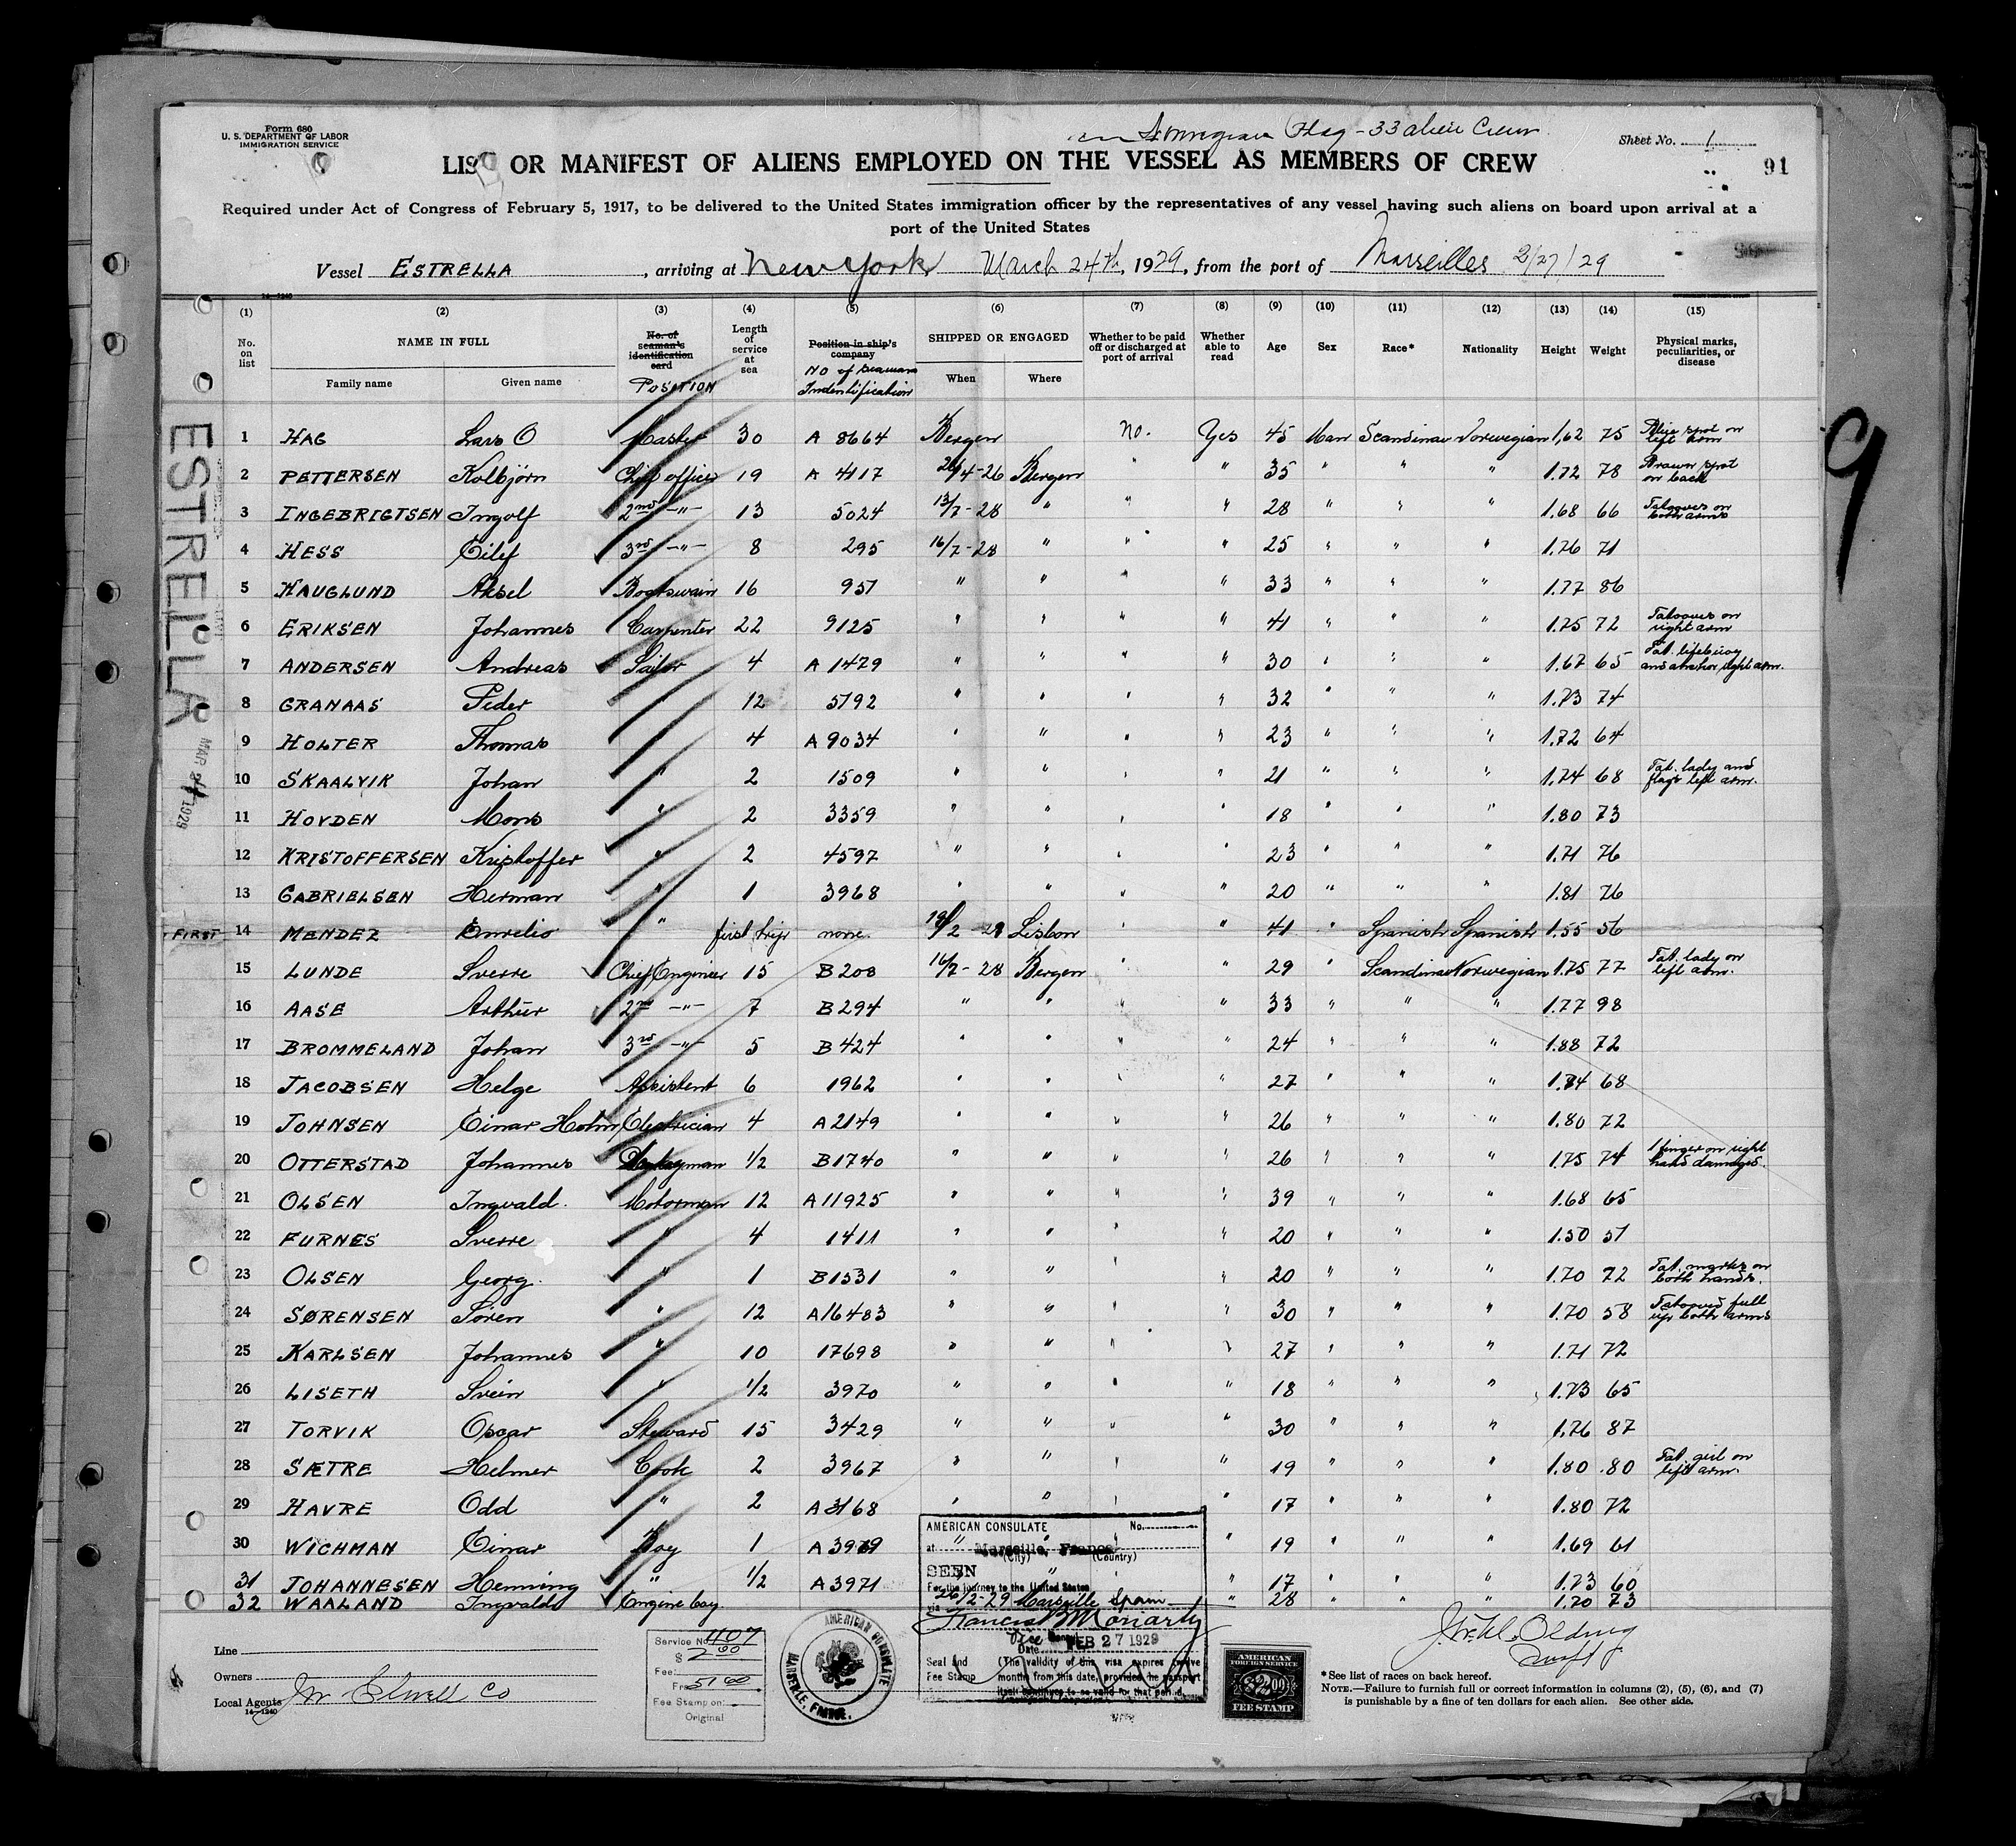 Form 680
U. S. DEPARTMENT OF LABOR
IMMIGRATION SERVICE
Norwegian Flag - 33 alien Crew
Sheet No. 1
91
LIST OR MANIFEST OF ALIENS EMPLOYED ON THE VESSEL AS MEMBERS OF CREW
Required under Act of Congress of February 5, 1917, to be delivered to the United States immigration officer by the representatives of any vessel having such aliens on board upon arrival at a
port of the United States
Vessel ESTRELLA, arriving at New York March 24th, 1929, from the port of Marseilles 2/27/29
14-1240
(1) (2) (3) (4) (5) (6) (7) (8) (9) (10) (11) (12) (13) (14) (15)
No. on list NAME IN FULL Family name Given name No. of seaman's identification card POSITION Length of service at sea Position in ship's company NO of Seamans Indentification SHIPPED OR ENGAGED When Where Whether to be paid off or discharged at port of arrival Whether able to read Age Sex Race* Nationality Height Weight Physical marks, peculiarities, or disease
1 HAG Lars O Master 30 A 8664 Bergen No. Yes 45 Man Scandinav Norwegian 1,62 75 Blue spot on left arm
2 PETTERSEN Kolbjörn Chief officer 19 A 4117 26/4-26 Bergen " " 35 " " " 1.72 78 Brawn spot on back
3 INGEBRIGTSEN Ingolf 2nd -"- 13 5024 13/7-28 " " " 28 " " " 1.68 66 Tatooves on both arms
4 HESS Eilif 3rd -"- 8 295 16/7-28 " " " 25 " " " 1.76 71
5 HAUGLUND Aksel Boatswain 16 951 " " " " 33 " " " 1.77 86
6 ERIKSEN Johannes Carpenter 22 9125 " " " " 41 " " " 1.75 72 Tatooves on right arm
7 ANDERSEN Andreas Sailor 4 A 1479 " " " " 30 " " " 1.67 65 Tat. lifebuoy and anchor right arm.
8 GRANAAS Peder " 12 5192 " " " " 32 " " " 1.73 74
9 HOLTER Thomas " 4 A 9034 " " " " 23 " " " 1.72 64
10 SKAALVIK Johan " 2 1509 " " " " 21 " " " 1.74 68 Tat. lady and flags left arm.
11 HOVDEN Mons " 2 3359 " " " " 18 " " " 1.80 73
12 KRISTOFFERSEN Kristoffer " 2 4597 " " " " 23 " " " 1.71 76
13 GABRIELSEN Herman " 1 3968 " " " " 20 " " " 1.81 76
FIRST 14 MENDEZ Emrelio " first trip none 19/2 29 Lisbon " " 41 " Spanish Spanish 1.55 56
15 LUNDE Sverre Chief Engineer 15 B 208 16/7-28 Bergen " " 29 " Scandinav Norwegian 1.75 77 Tat. lady on left arm.
16 AASE Arthur 2nd -"- 7 B 294 " " " " 33 " " " 1.77 98
17 BROMMELAND Johan 3rd -"- 5 B 424 " " " " 24 " " " 1.88 72
18 JACOBSEN Helge Assistent 6 1962 " " " " 27 " " " 1.74 68
19 JOHNSEN Einar Holm Electrician 4 A 2149 " " " " 26 " " " 1.80 72
20 OTTERSTAD Johannes 1/2 B1740 " " " " 26 " " " 1.75 74 1 finger on right hand damaged.
21 OLSEN Ingvald. Motorman 12 A 11925 " " " " 39 " " " 1.68 65
22 FURNES Sverre " 4 1411 " " " " 20 " " " 1.50 51
23 OLSEN Georg. " 1 B1531 " " " " 20 " " " 1.70 72 Tat. marks on both hands.
24 SØRENSEN Sören " 12 A16483 " " " " 30 " " " 1.70 58 Tatooved full up both arms
25 KARLSEN Johannes " 10 17698 " " " " 27 " " " 1.71 72
26 LISETH Svein " 1/2 3970 " " " " 18 " " " 1.73 65
27 TORVIK Oscar Steward 15 3429 " " " " 30 " " " 1.76 87
28 SÆTRE Helmer Cook 2 3967 " " " " 19 " " " 1.80 .80 Tat. girl on left arm.
29 HAVRE Odd " 2 A 3168 " " " " 17 " " " 1.80 72
30 WICHMAN Einar Boy 1 A 3969 " " " " 19 " " " 1.69 61
31 JOHANNESEN Henning " 1/2 A 3971 " " " 17 " " " 1.73 60
32 WAALAND Ingvald Engine boy 26/2-29 Marseille Spain " 28 " " " 1.70 73
ESTRELLA
MAR 24 1929
9
AMERICAN CONSULATE No.
at Marseille, France
(City) (Country)
SEEN
For the journey to the United States
via
Francis B Moriarty
Vice Consul
Date FEB 27 1929
Seal and Fee Stamp
(The validity of this visa expires twelve
months from this date, provided the passport
itself continues to be valid for that period.
Line
Owners
Local Agents J W Elwell Co
14-1240
Service No. 1107
$ 2.00
Fee:
Frs 51.00
Fee Stamp on:
Original
AMERICAN CONSULATE
MARSEILLE, FRANCE.
AMERICAN
FOREIGN SERVICE
$2.00
FEE STAMP
*See list of races on back hereof.
NOTE.—Failure to furnish full or correct information in columns (2), (5), (6), and (7)
is punishable by a fine of ten dollars for each alien. See other side.